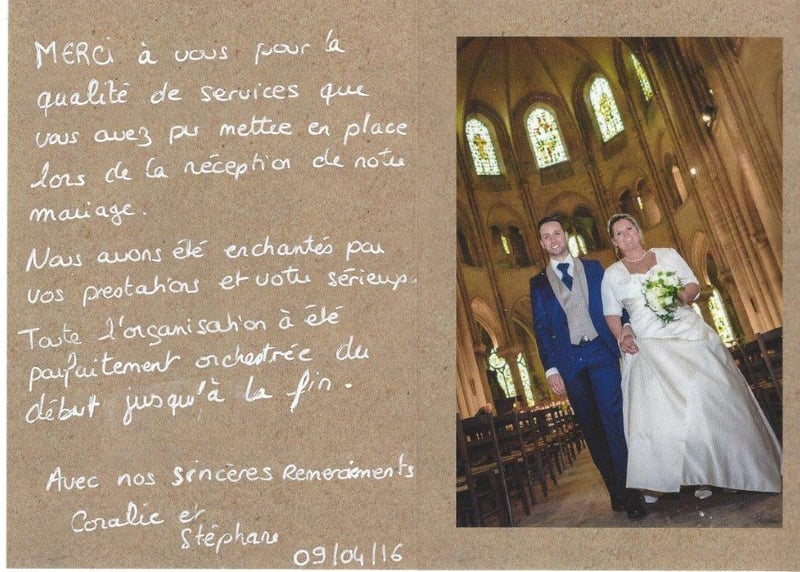 MERCI à vous pour la
qualité de services que
vous avez pu mettre en place
lors de la réception de notre
mariage.
Nous avons été enchantés par
vos prestations et votre sérieux.
Toute l'organisation à été
parfaitement orchestrée du
début jusqu'à la fin.
Avec nos sincères Remerciements
Coralie et
Stéphane
09/04/16